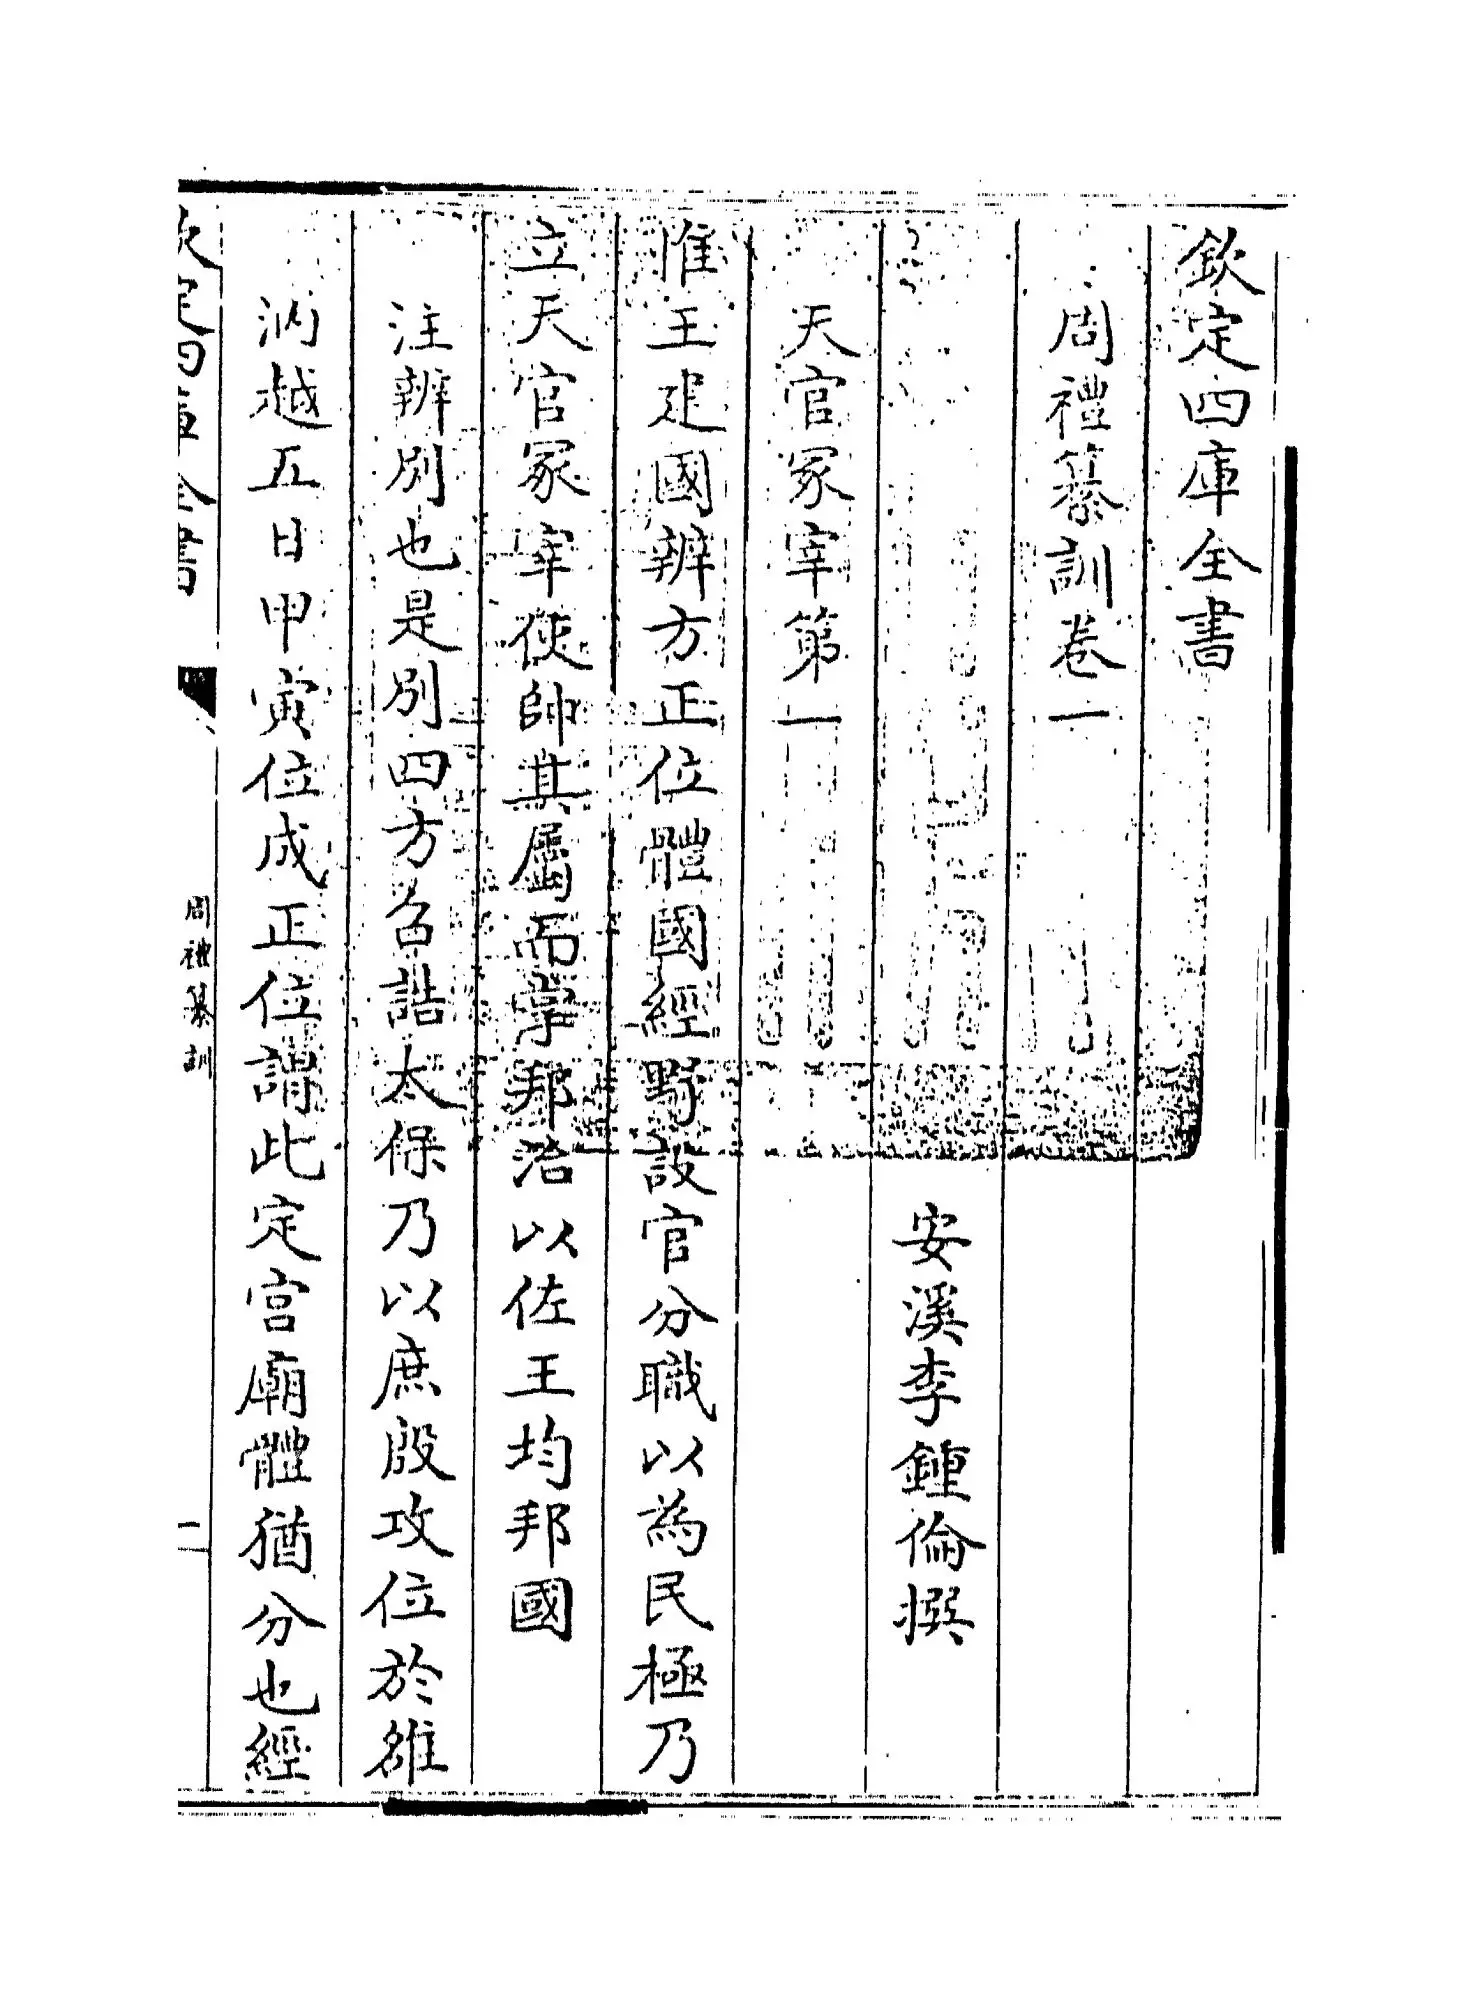 欽定四庫全書
周禮纂訓卷一
安溪李鍾倫撰
天官冢宰第一
惟王建國辨方正位體國經野設官分職以為民極乃
立天官冢宰使帥其屬而掌邦治以佐王均邦國
注辨别也是别四方召誥太保乃以庶殷攻位於雒
汭越五日甲寅位成正位謂此定宫廟體猶分也經
欽定四庫全書
周禮纂訓
一